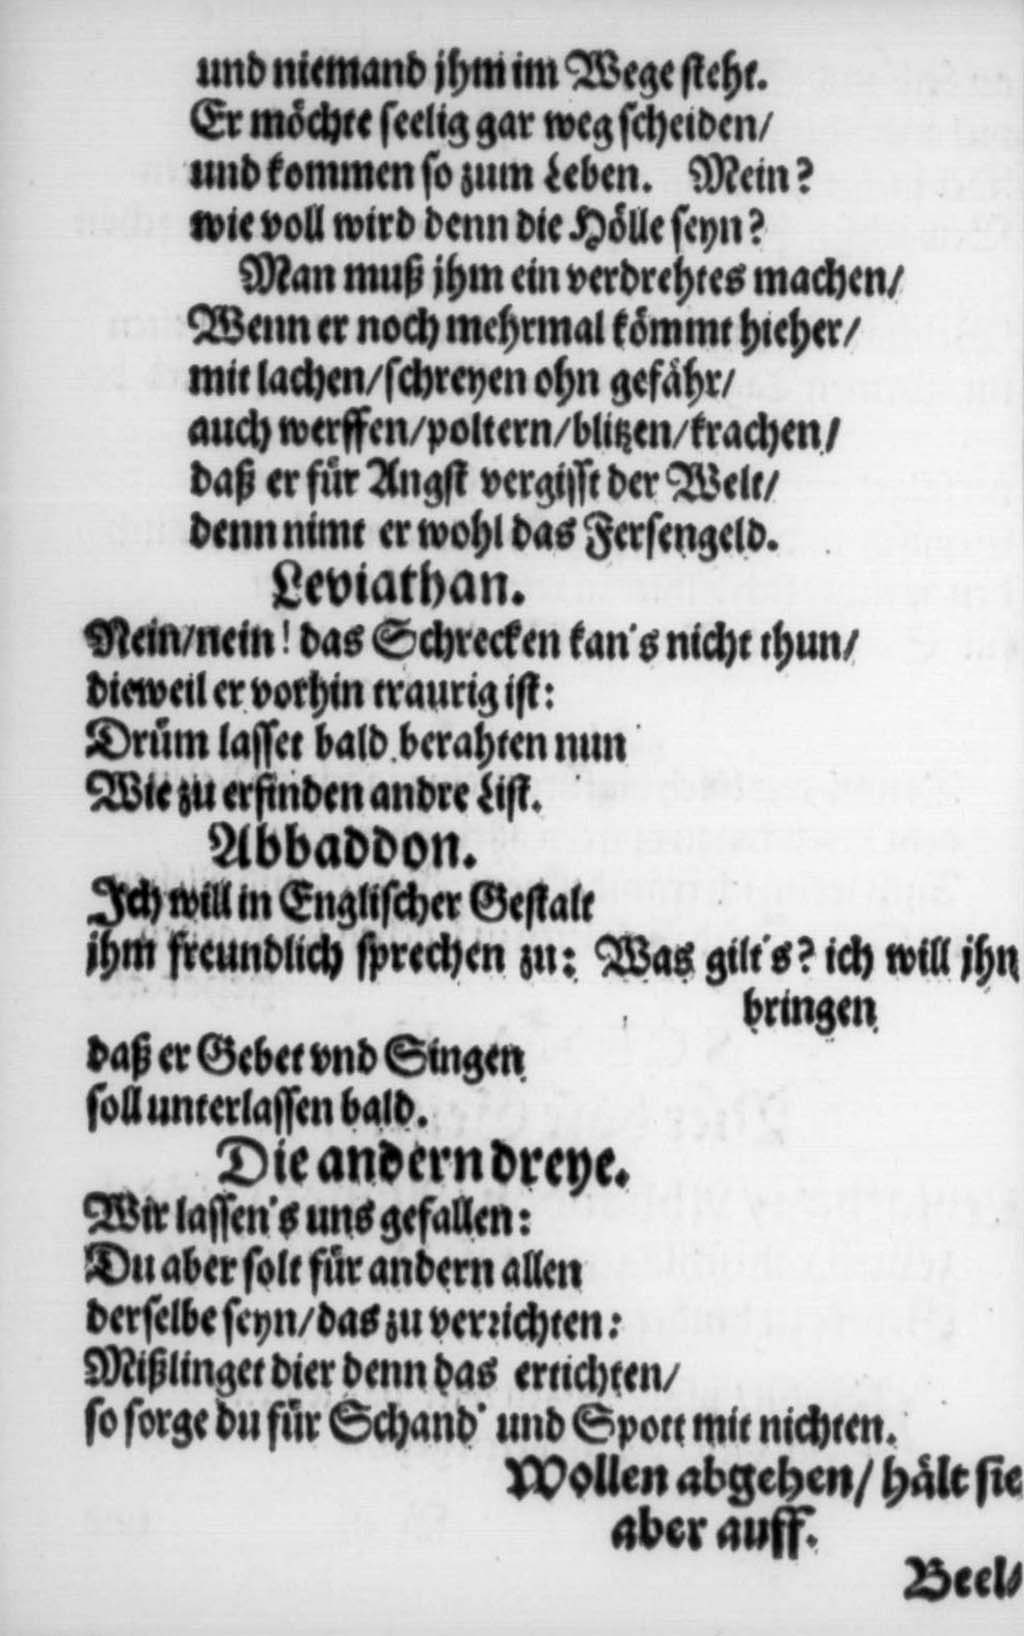 und niemand jhm im Wege steht.
Er möchte seelig gar weg scheiden/
und kommen so zum Leben. Mein?
wie voll wird denn die Hölle seyn?
Man muß jhm ein verdrehtes machen/
Wenn er noch mehrmal kömmt hieher/
mit lachen/schreyen ohn gefähr/
auch werffen/poltern/blitzen/krachen/
daß er für Angst vergisst der Welt/
denn nimt er wohl das Fersengeld.
Leviathan.
Nein/nein! das Schrecken kan's nicht thun/
dieweil er vorhin traurig ist:
Drüm lasset bald berahten nun
Wie zu erfinden andre List.
Abbaddon.
Jch will in Englischer Gestalt
jhm freundlich sprechen zu: Was gilt's? ich will jhn
bringen
daß er Gebet vnd Singen
soll unterlassen bald.
Die andern dreye.
Wir lassen's uns gefallen:
Du aber solt für andern allen
derselbe seyn/das zu verrichten:
Mißlinget dier denn das ertichten/
so sorge du für Schand' und Spott mit nichten.
Wollen abgehen/ hält sie
aber auff.
Beel-